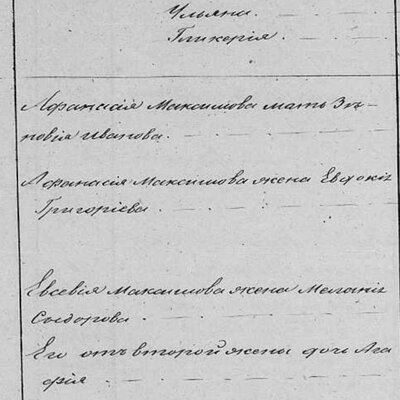 Ульяна.
Гликерія.
Афанасія Максимова мать Зѣ-
новія Иванова.
Афанасія Максимова жена Евдокія
Григоріева.
Евсевія Максимова жена Меланія
Сыдорова.
Его отъ второй жены дочь Ага
фія